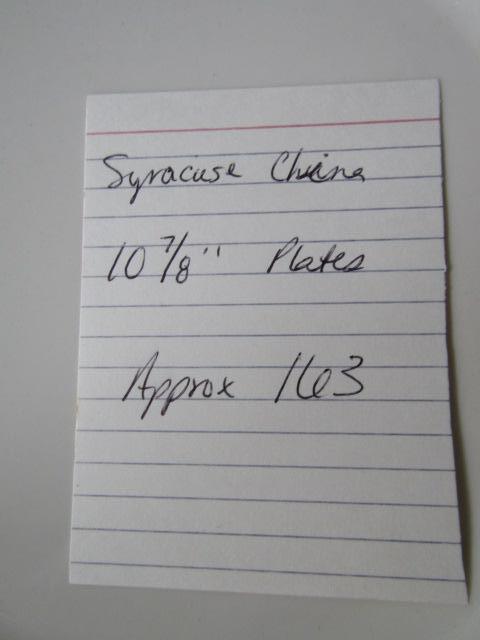 Syracuse China
10 7/8" Plates
Approx 163